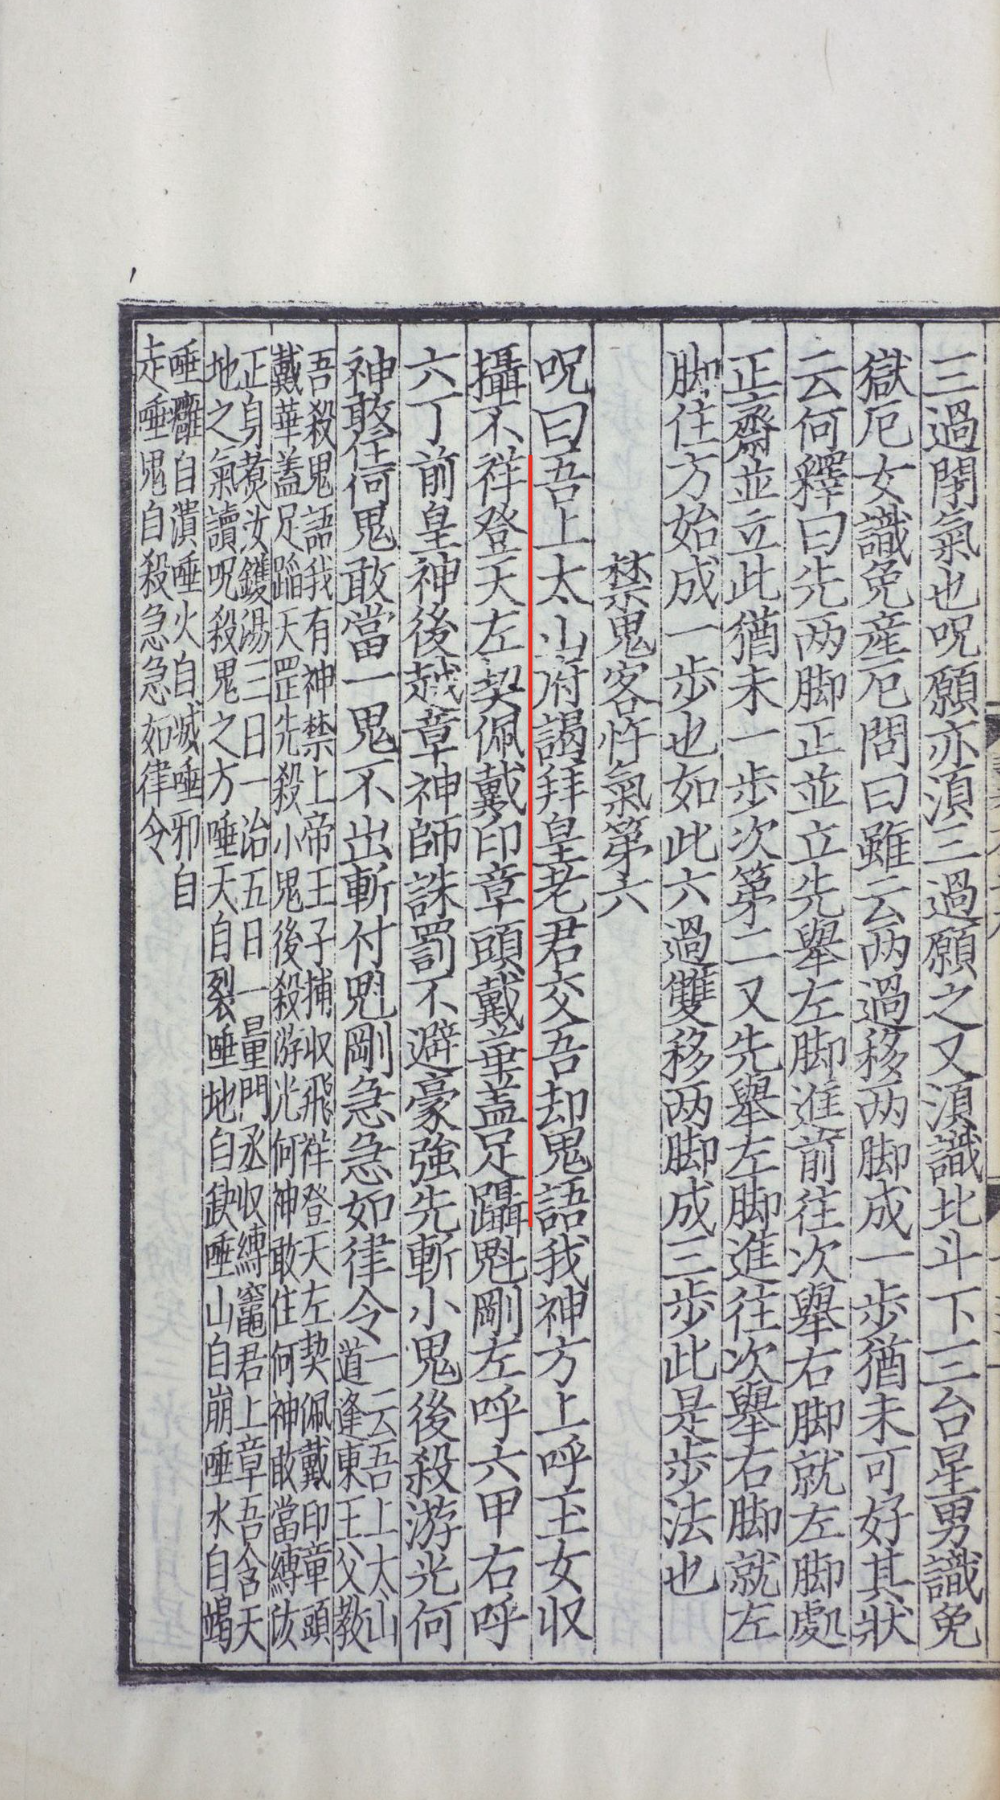 三過閇氣也呪願亦須三過願之又須識北斗下三台星男識免
獄厄女識免産厄問曰雖云两過移两脚成一步猶未可好其狀
云何釋曰先两脚正並立先舉左脚進前往次舉右脚就左脚處
正齋並立此猶未一步次第二又先舉左脚進往次舉右脚就左
脚住方始成一步也如此六過雙移两脚成三步此是步法也
禁鬼客忤氣第六
呪曰吾上太山府謁拜皇老君交吾却鬼語我神方上呼玉女収
攝不祥登天左契佩戴印章頭戴華蓋足躡魁剛左呼六甲右呼
六丁前皇神後越章神師誅罰不避豪強先斬小鬼後殺游光何
神敢住何鬼敢當一鬼不出斬付魁剛急急如律令一云吾上太山
道逢東王父教
吾殺鬼語我有神禁上帝王子捕収飛祥登天左契佩戴印章頭
戴華蓋足蹈天罡先殺小鬼後殺游光何神敢住何神敢當縛汝
正身煑汝鑊湯三日一治五日一量門丞収縛竈君上章吾含天
地之氣讀呪殺鬼之方唾天自裂唾地自缺唾山自崩唾水自竭
唾癰自潰唾火自滅唾邪自
走唾鬼自殺急急如律令